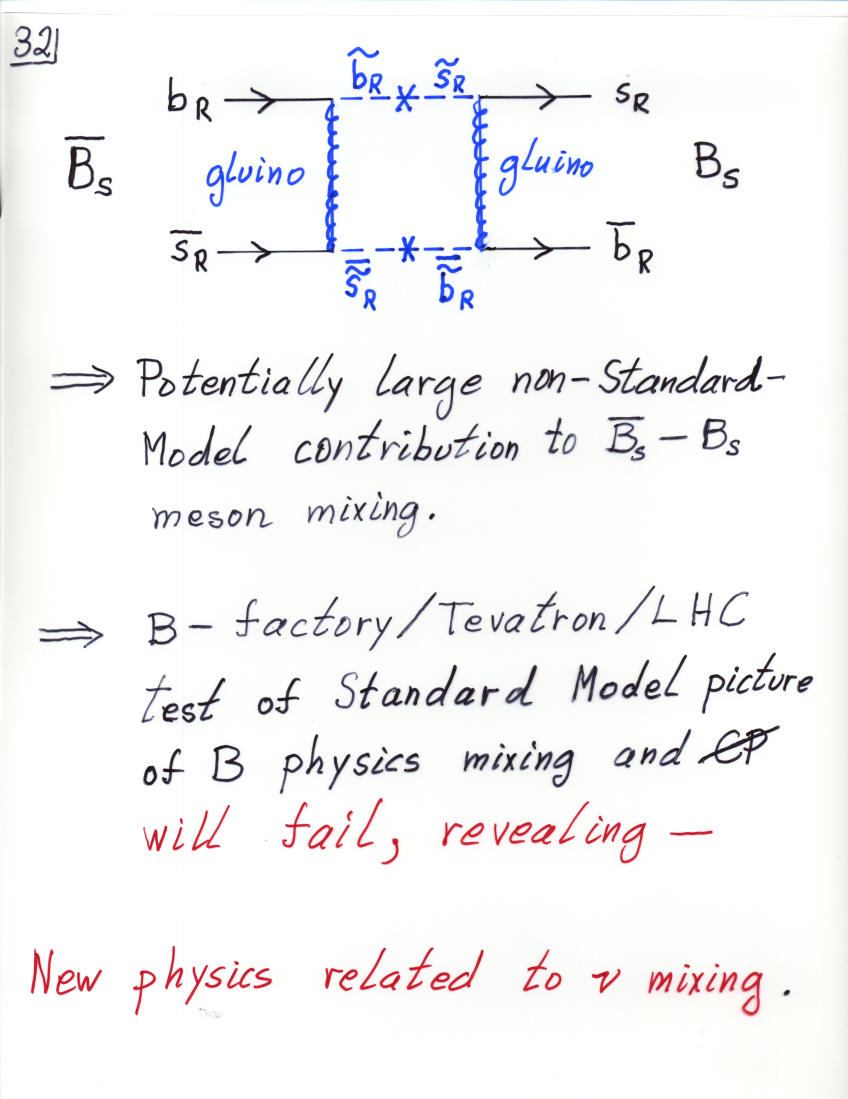 32
b̃R s̃R
bR sR
B̄s gluino gluino Bs
s̄R b̄R
s̃̄R b̃̄R
⟹ Potentially large non-Standard-
Model contribution to B̄s – Bs
meson mixing.
⟹ B-factory/Tevatron/LHC
test of Standard Model picture
of B physics mixing and C̸P̸
will fail, revealing —
New physics related to ν mixing.